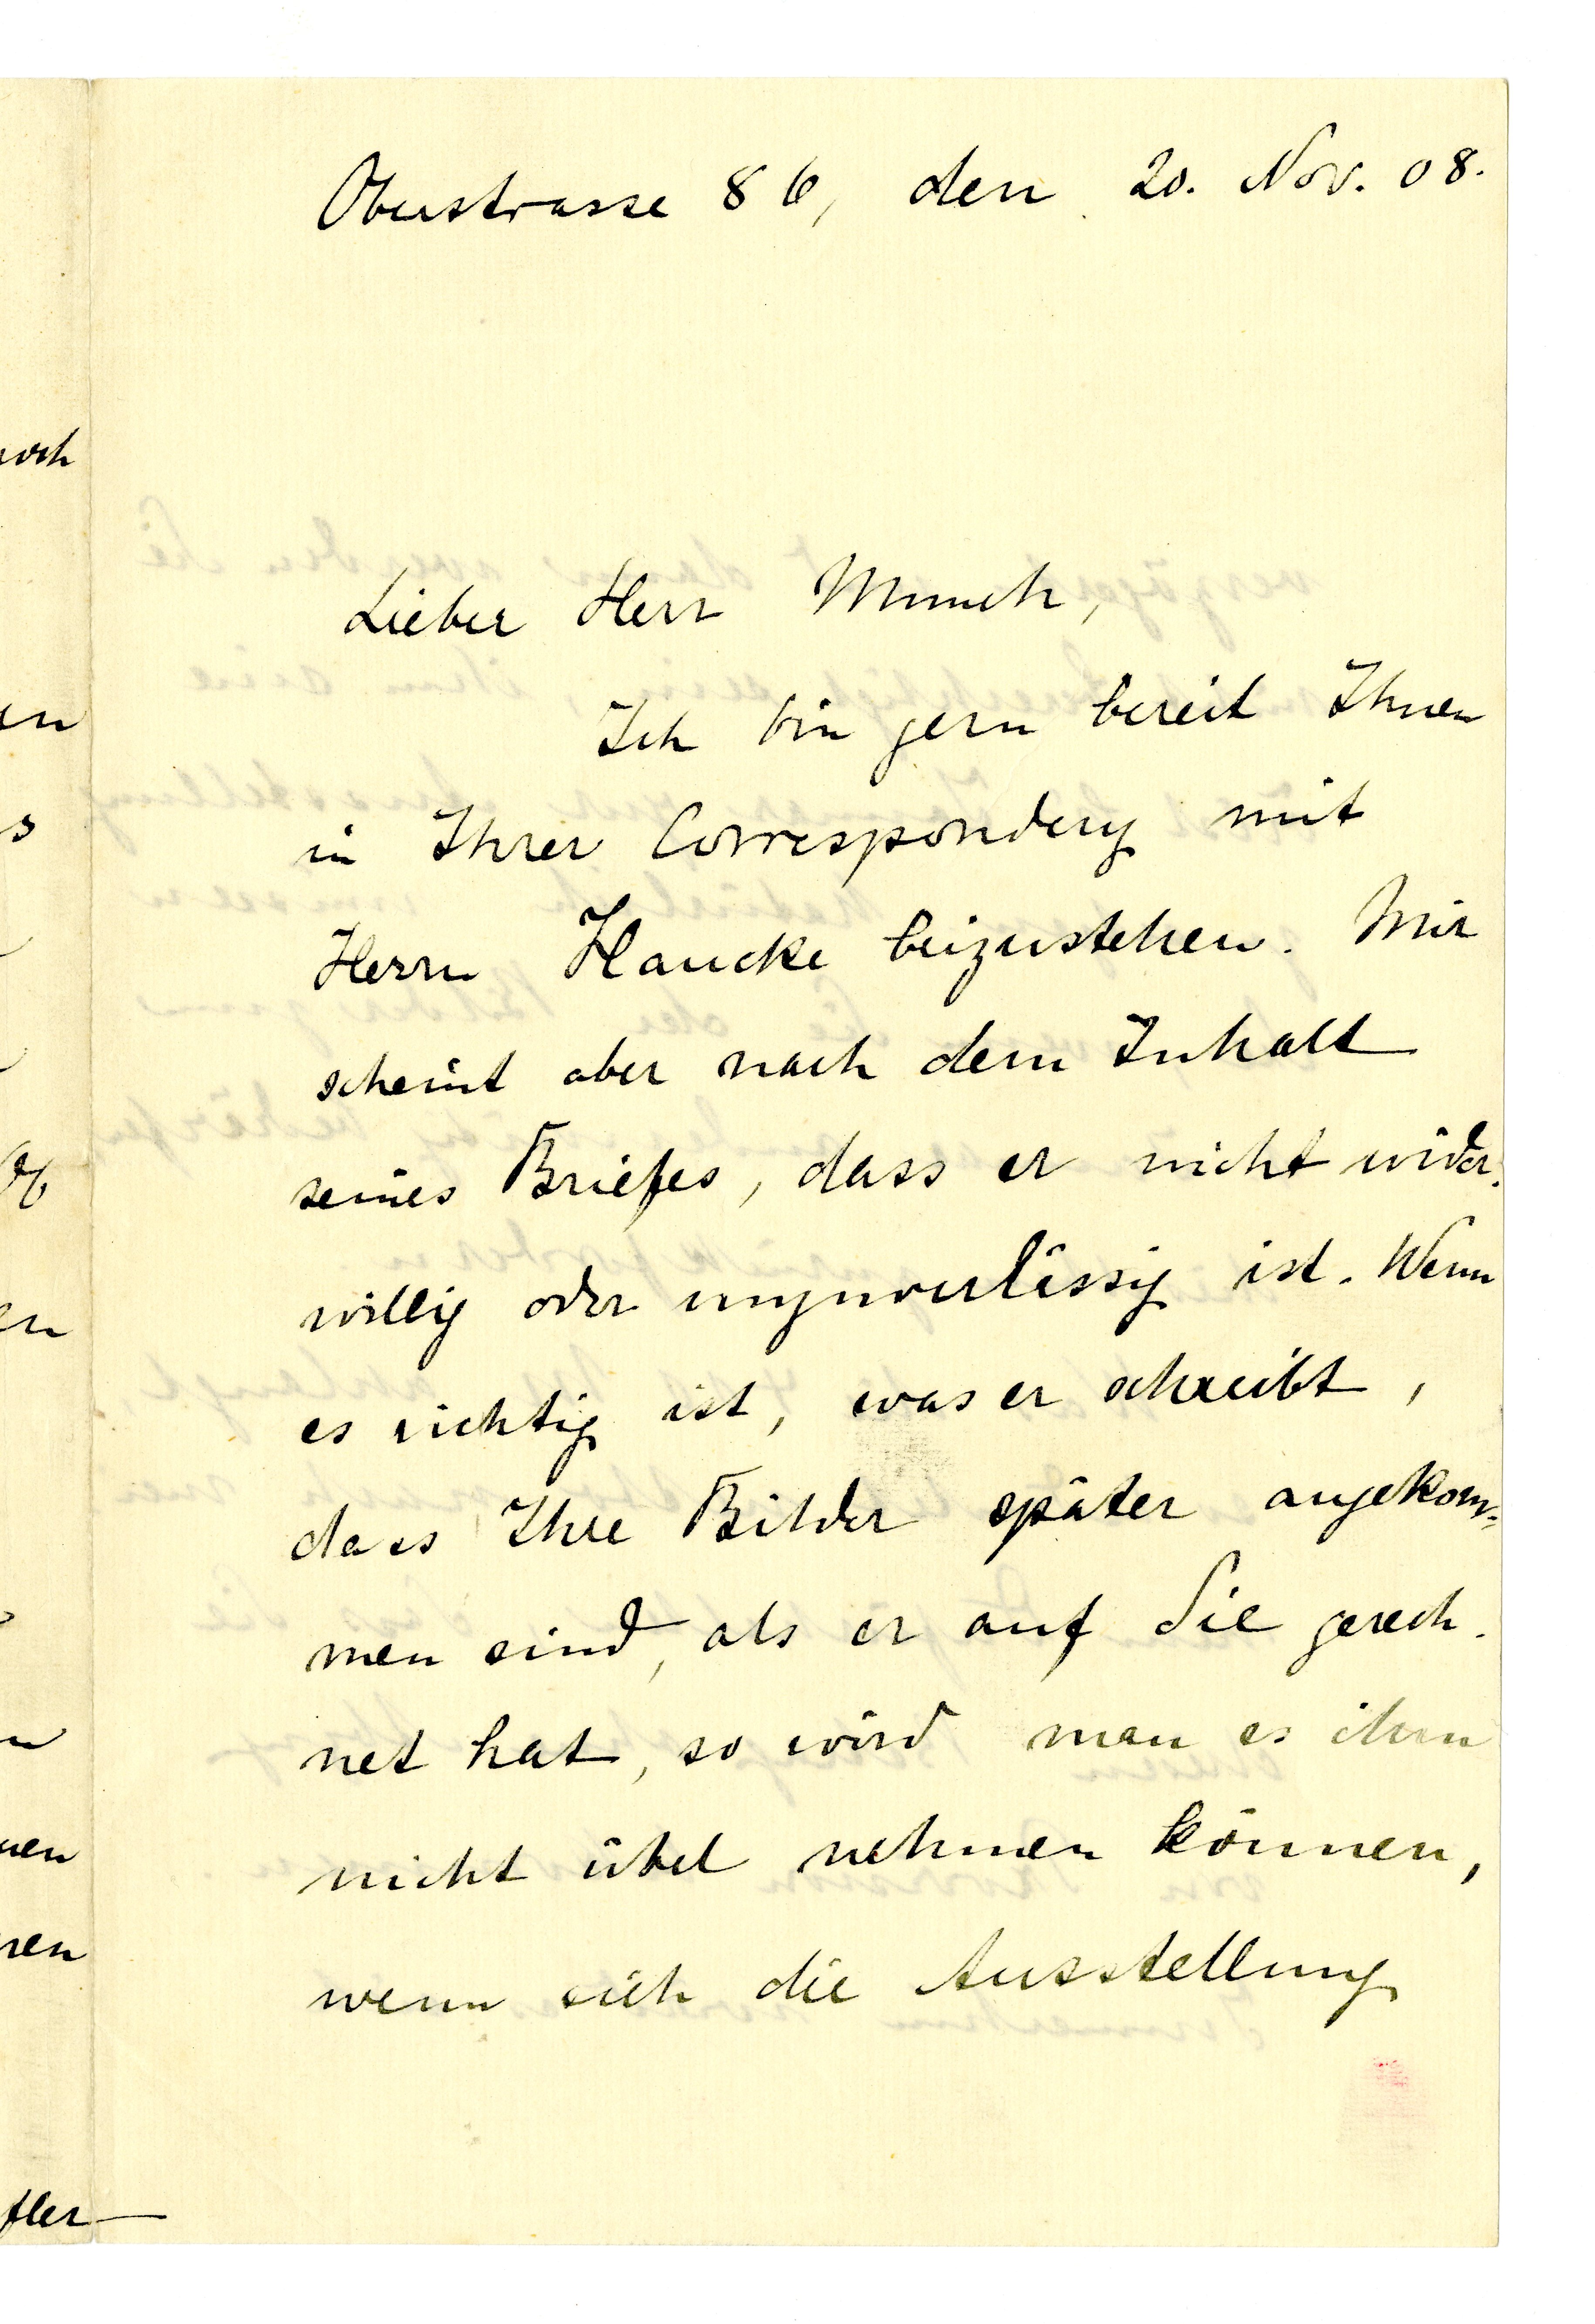 Oberstrasse 86, den 20. Nov. 08.
Lieber Herr Munch,
Ich bin gern bereit Ihnen
in Ihrer Correspondenz mit
Herrn Haucke beizustehen. Mir
scheint aber nach dem Inhalt
seines Briefes, dass er nicht wider-
willig oder unzuverlässig ist. Wenn
es richtig ist, was er schreibt,
dass Ihre Bilder später angekom=
men sind, als er auf Sie gerech-
net hat, so wird man es ihm
nicht übel nehmen können,
wenn sich die Ausstellung